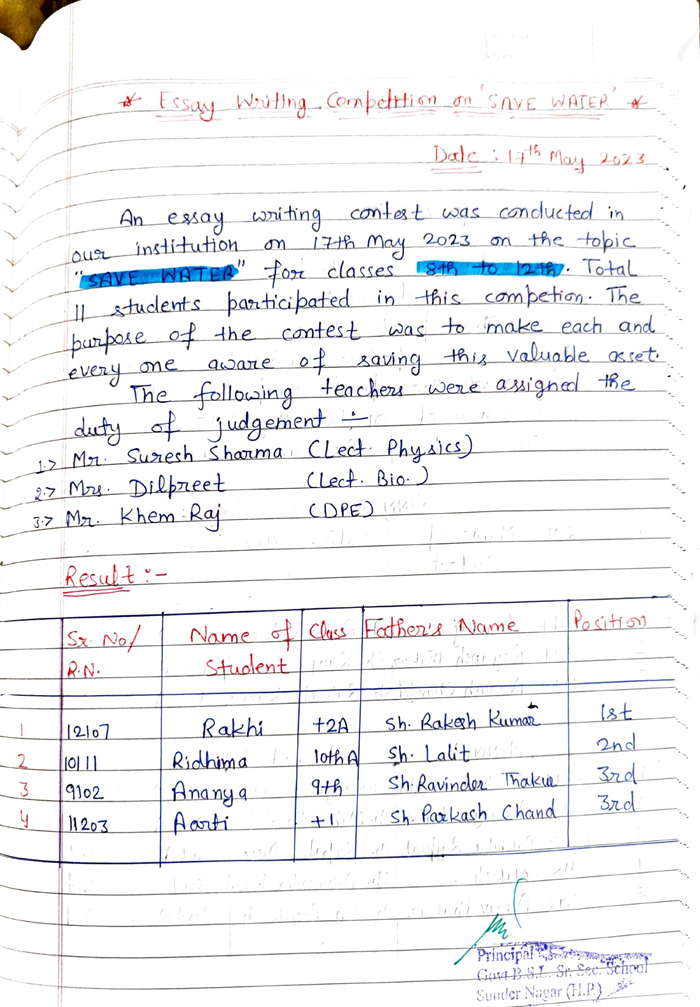 * Essay Writing Competition on 'SAVE WATER' *
Date : 17th May 2023
An essay writing contest was conducted in
our institution on 17th May 2023 on the topic
"SAVE WATER" for classes 8th to 12th. Total
11 students participated in this competion. The
purpose of the contest was to make each and
every one aware of saving this valuable asset.
The following teachers were assigned the
duty of judgement :-
1.> Mr. Suresh Sharma (Lect. Physics)
2.> Mrs. Dilpreet (Lect. Bio.)
3.> Mr. Khem Raj (DPE)
Result :-
Sr. No/ Name of Class Father's Name Position
R.N. Student
1 12107 Rakhi +2A Sh. Rakesh Kumar 1st
2 10111 Ridhima 10th A Sh. Lalit 2nd
3 9102 Ananya 9th Sh. Ravinder Thakur 3rd
4 11203 Aarti +1 Sh. Parkash Chand 3rd
Principal
Govt B.S.L. Sr. Sec. School
Sunder Nagar (H.P.)